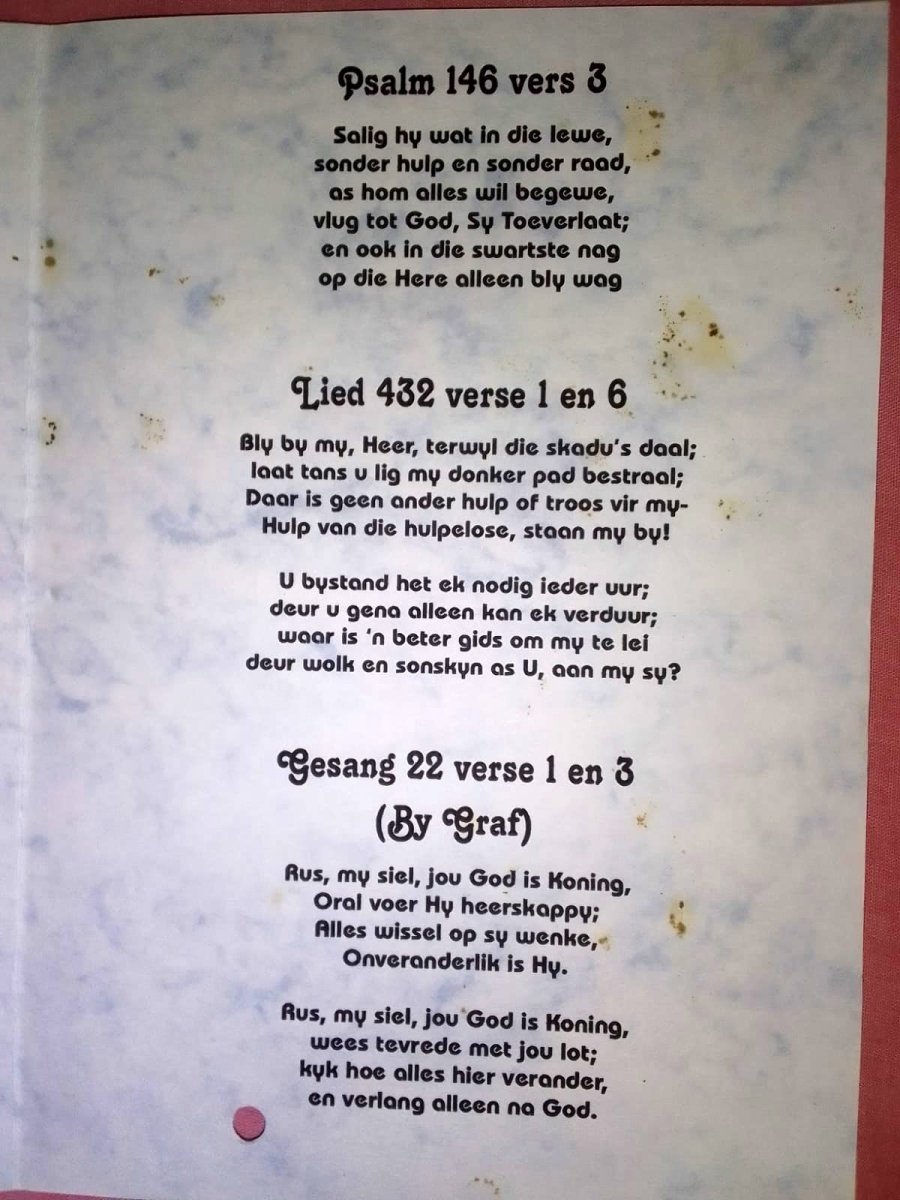 Psalm 146 vers 3
Salig hy wat in die lewe,
sonder hulp en sonder raad,
as hom alles wil begewe,
vlug tot God, Sy Toeverlaat;
en ook in die swartste nag
op die Here alleen bly wag
Lied 432 verse 1 en 6
Bly by my, Heer, terwyl die skadu's daal;
laat tans u lig my donker pad bestraal;
Daar is geen ander hulp of troos vir my-
Hulp van die hulpelose, staan my by!
U bystand het ek nodig ieder uur;
deur u gena alleen kan ek verduur;
waar is 'n beter gids om my te lei
deur wolk en sonskyn as U, aan my sy?
Gesang 22 verse 1 en 3
(By Graf)
Rus, my siel, jou God is Koning,
Oral voer Hy heerskappy;
Alles wissel op sy wenke,
Onveranderlik is Hy.
Rus, my siel, jou God is Koning,
wees tevrede met jou lot;
kyk hoe alles hier verander,
en verlang alleen na God.